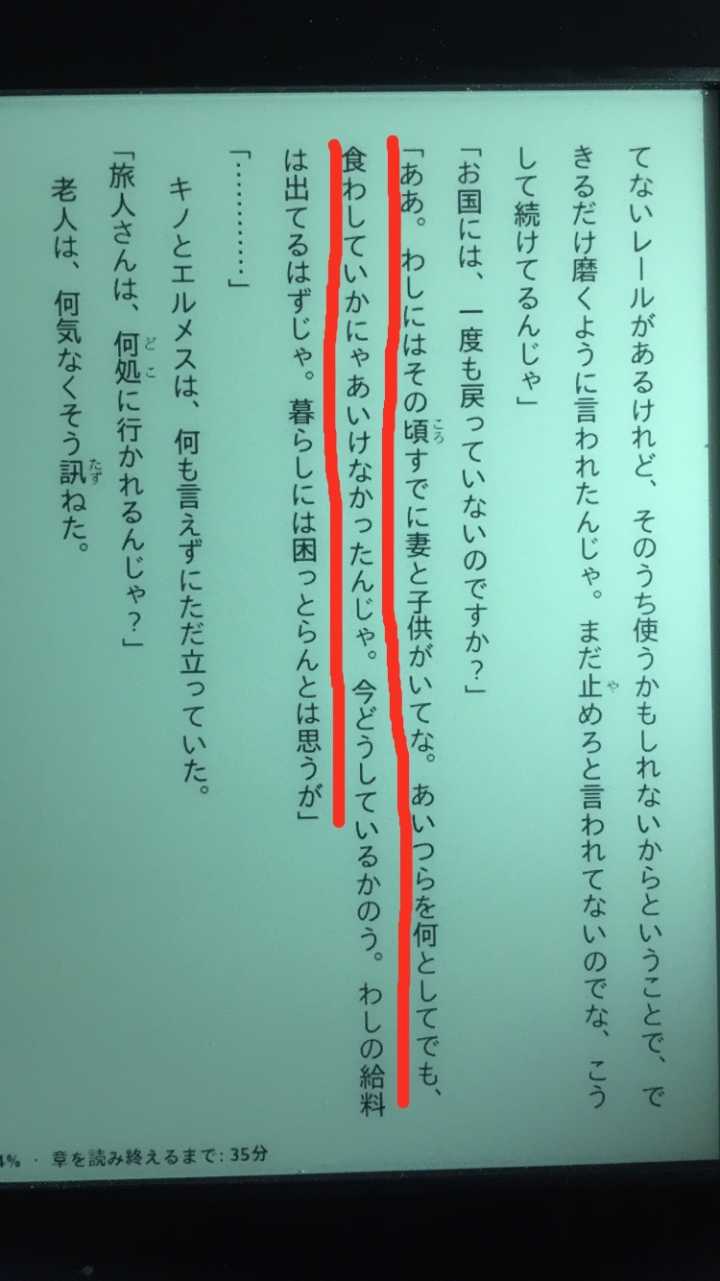 てないレールがあるけれど、そのうち使うかもしれないからということで、で
きるだけ磨くように言われたんじゃ。まだ止めろと言われてないのでな、こう
して続けてるんじゃ」
「お国には、一度も戻っていないのですか?」
「ああ。わしにはその頃すでに妻と子供がいてな。あいつらを何としてでも、
食わしていかにゃあいけなかったんじゃ。今どうしているかのう。わしの給料
は出てるはずじゃ。暮らしには困っとらんとは思うが」
「…………」
キノとエルメスは、何も言えずにただ立っていた。
「旅人さんは、何処に行かれるんじゃ?」
老人は、何気なくそう訊ねた。
4% · 章を読み終えるまで: 35分